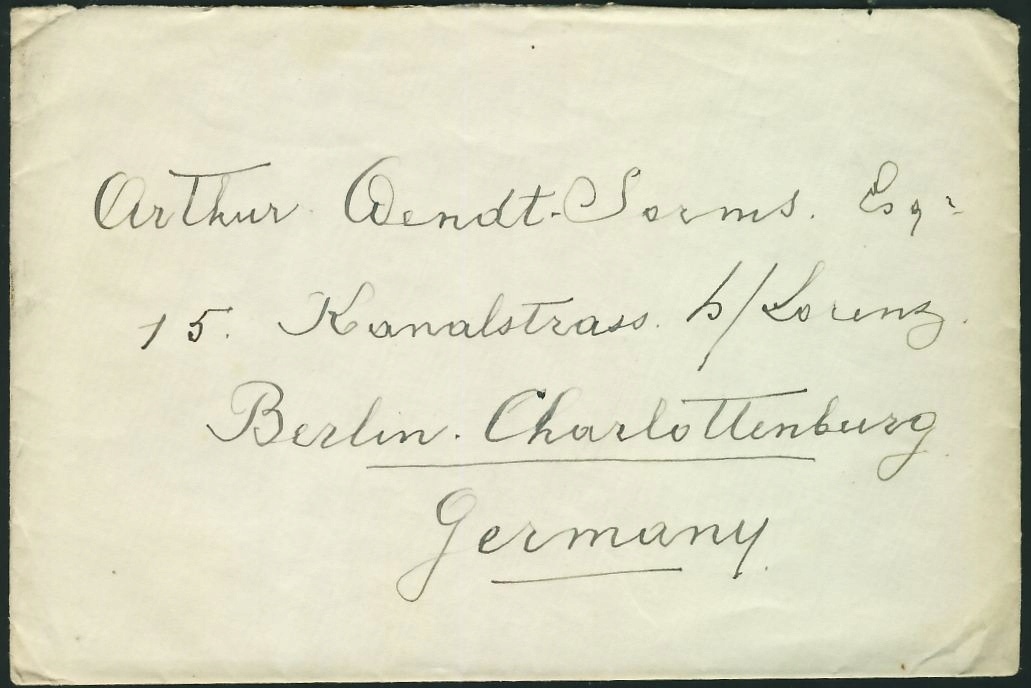 Arthur Wendt-Sorms. Esqr
15. Kanalstrass. b/Lorenz.
Berlin. Charlottenburg.
Germany.